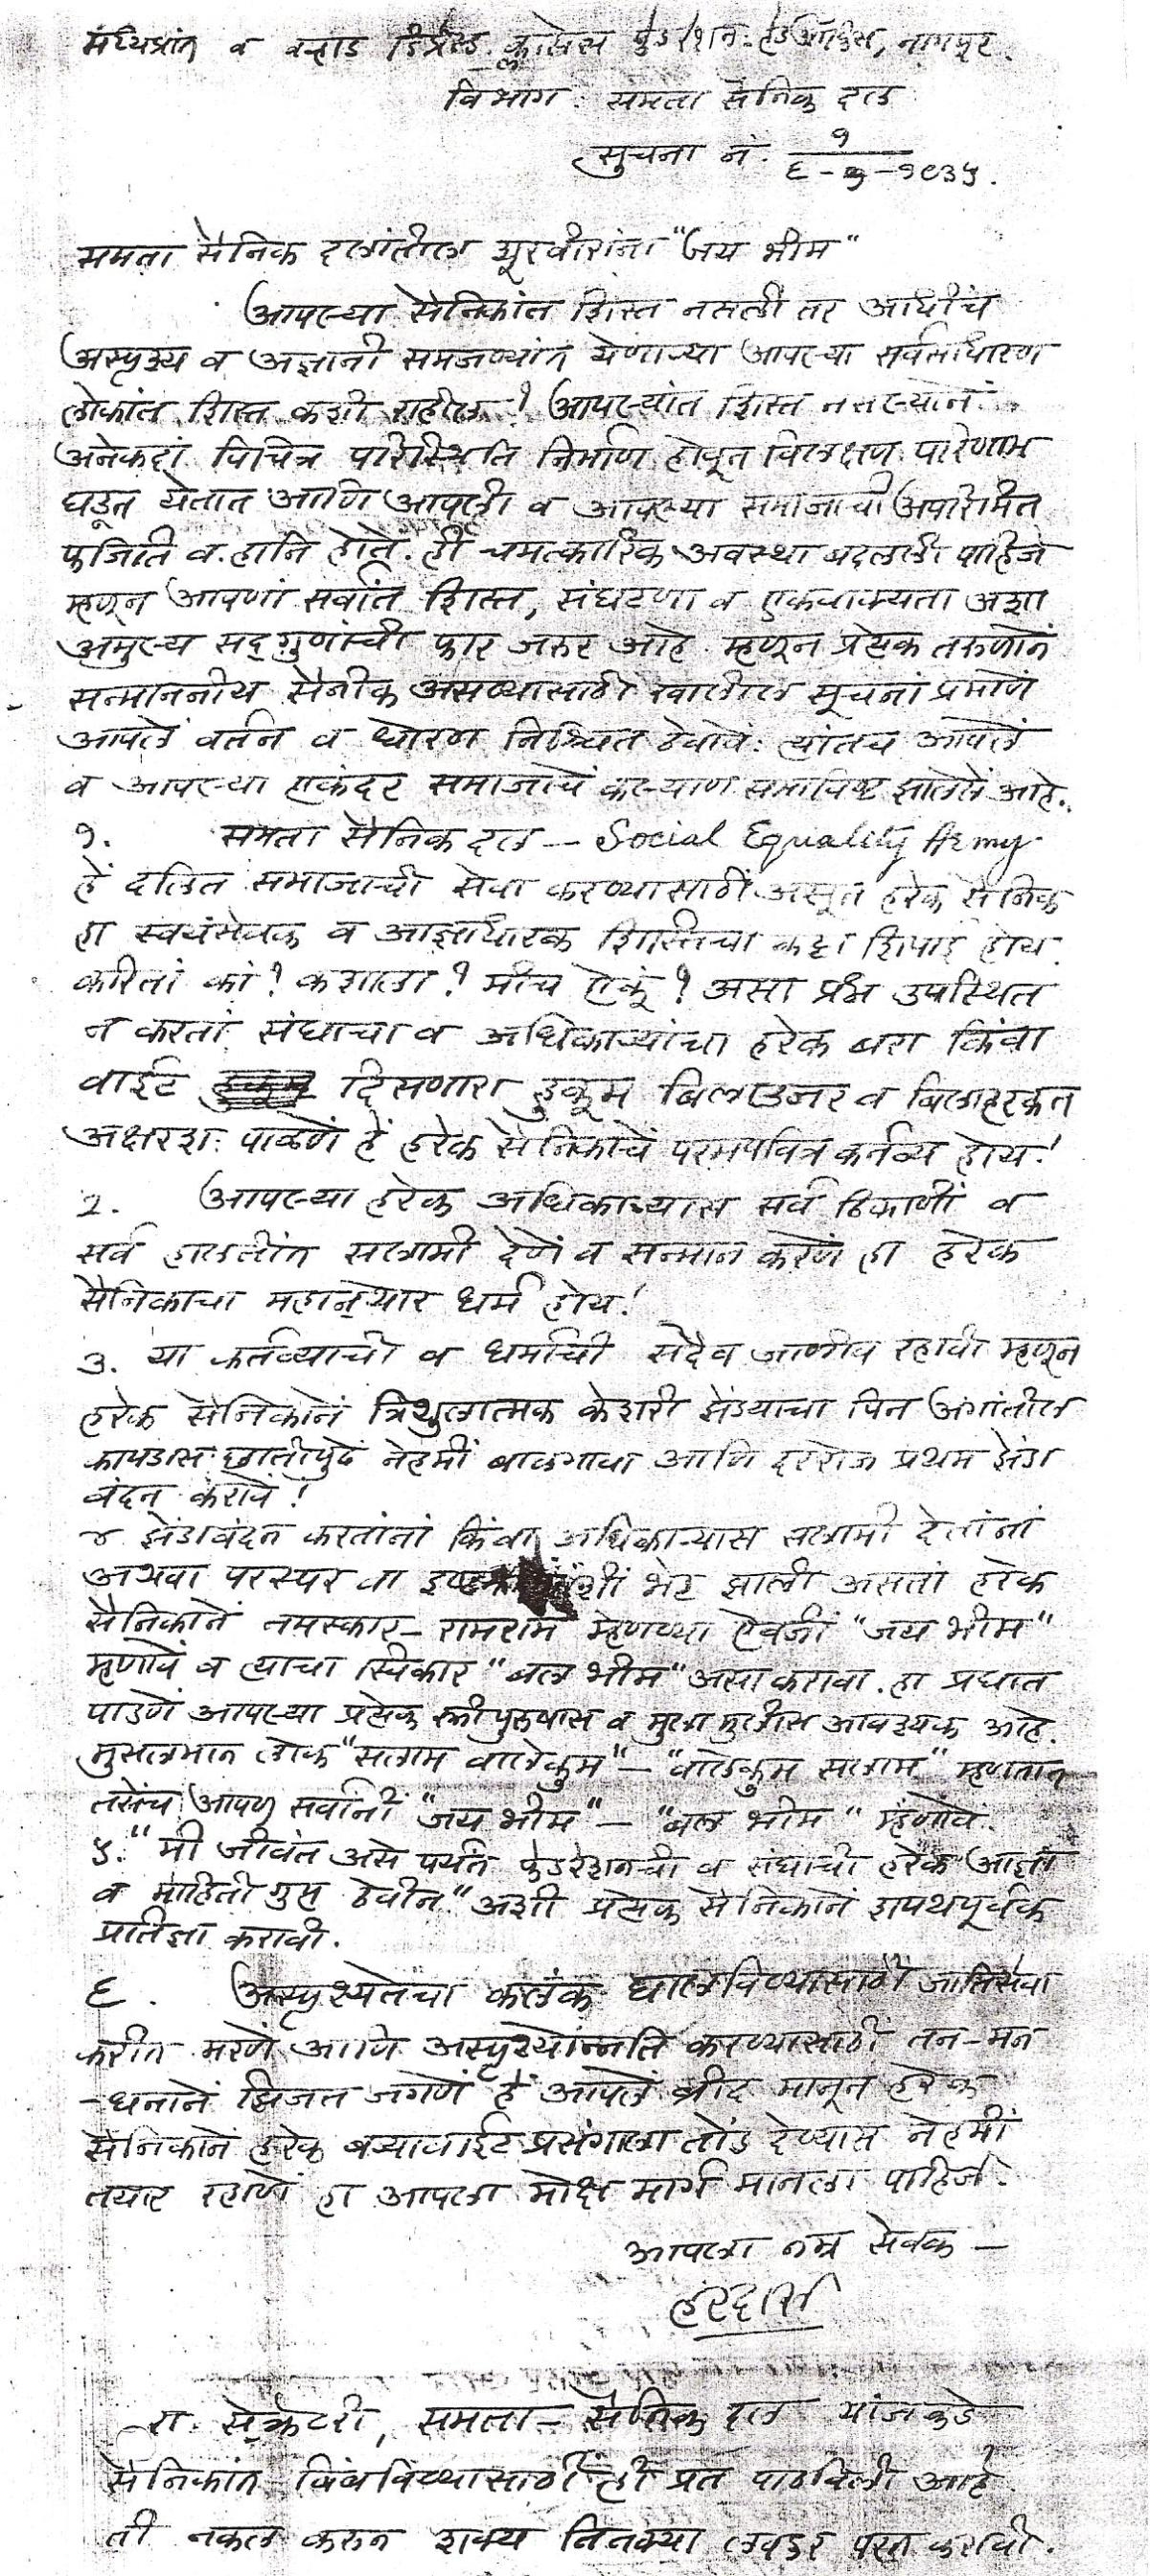 मध्यप्रांत व वऱ्हाड डिप्रेस्ड क्लासेस फेडरेशन - हेड ऑफीस, नागपूर.
विभाग : समता सैनिक दल
सुचना नं. १
६-७-१९३५.
समता सैनिक दलांतील शूरवीरांना "जय भीम"
आपल्या सैनिकांत शिस्त नसली तर आधींच
अस्पृश्य व अज्ञानी समजण्यांत येणाऱ्या आपल्या सर्वसाधारण
लोकांत शिस्त कशी राहील? आपल्यांत शिस्त नसल्यानें
अनेकदां विचित्र परिस्थिति निर्माण होवून विलक्षण परिणाम
घडून येतात आणि आपली व आपल्या समाजाची अपरिमित
फजिति व हानि होते. ही चमत्कारिक अवस्था बदलली पाहिजे
म्हणून आपणां सर्वांत शिस्त, संघटणा व एकवाक्यता अशा
अमुल्य सद्गुणांची फार जरुर आहे म्हणून प्रत्येक तरुणानें
सन्माननीय सैनीक असल्यासाठीं खालील सूचनां प्रमाणें
आपलें वर्तन व धोरण निश्चित ठेवावें. त्यांतच आपलें
व आपल्या एकंदर समाजाचें कल्याण समाविष्ट झालेलें आहे.
१. समता सैनिक दल - Social Equality Army
हें दलित समाजाची सेवा करण्यासाठीं असून हरेक सैनिक
हा स्वयंसेवक व आज्ञाधारक शिस्तिचा कट्टा शिपाई होय.
करितां कां? कशाला? मीच ऐकूं? असा प्रश्न उपस्थित
न करतां संघाचा व अधिकाऱ्यांचा हरेक बरा किंवा
वाईट दिसणारा हुकूम बिलाउजर व बिलाहरकत
अक्षरशः पाळणें हें हरेक सैनिकाचें परमपवित्र कर्तव्य होय!
2. आपल्या हरेक अधिकाऱ्यास सर्व ठिकाणीं व
सर्व हालतींत सलामी देणें व सन्मान करणें हा हरेक
सैनिकाचा महान् थार धर्म होय!
३. या कर्तव्याची व धर्माची सदैव जाणीव रहावी म्हणून
हरेक सैनिकानें त्रिशुलात्मक केशरी झेंड्याचा पिन अंगांतील
कापडास छातीपुढें नेहमीं बाळगावा आणि दररोज प्रथम झेंडा
वंदन करावें!
४ झेंडावंदन करतांनां किंवा अधिकाऱ्यास सलामी देतांनां
अथवा परस्पर वा भेट झाली असतां हरेक
सैनिकानें नमस्कार - रामराम म्हणण्या ऐवजीं "जय भीम"
म्हणावें व त्याचा स्विकार "बल भीम" असा करावा. हा प्रघात
पाडणें आपल्या प्रत्येक स्त्रीपुरुषास व मुला मुलींस आवश्यक आहे.
मुसलमान लोक "सलाम वालेकुम" - "वालेकुम सलाम" म्हणतात
तसेंच आपण सर्वांनीं "जय भीम" - "बल भीम" म्हणावें.
५. "मी जीवंत असे पर्यंत फेडरेशनची व संघाची हरेक आज्ञा
व माहिती गुप्त ठेवीन." अशी प्रत्येक सैनिकानें शपथपूर्वक
प्रतिज्ञा करावी.
६. अस्पृश्यतेचा कलंक घालविण्यासाठीं जातिसेवा
करीत मरणें आणि अस्पृश्योन्नति करण्यासाठीं तन-मन
-धनानें झिजत जगणें हें आपलें ब्रीद मानून हरेक
सैनिकानें हरेक बऱ्यावाईट प्रसंगाला तोंड देण्यास नेहमीं
तयार रहाणें हा आपला मोक्ष मार्ग मानला पाहिजे.
आपला नम्र सेवक -
हरदास
रा. सेक्रेटरी, समता - सैनिक दल यांजकडे
सैनिकांत बिंबविण्यासाठीं ही प्रत पाठविली आहे
ती नकल करून शक्य तितक्या लवकर परत करावी.